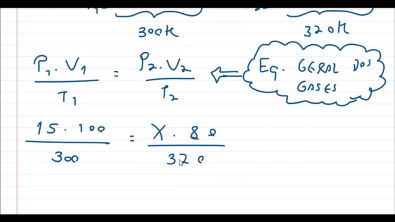 300K 320K
P₁ . V₁ / T₁ = P₂ . V₂ / T₂ ⇐ Eq. GERAL DOS GASES
15 . 100 / 300 = X . 80 / 320